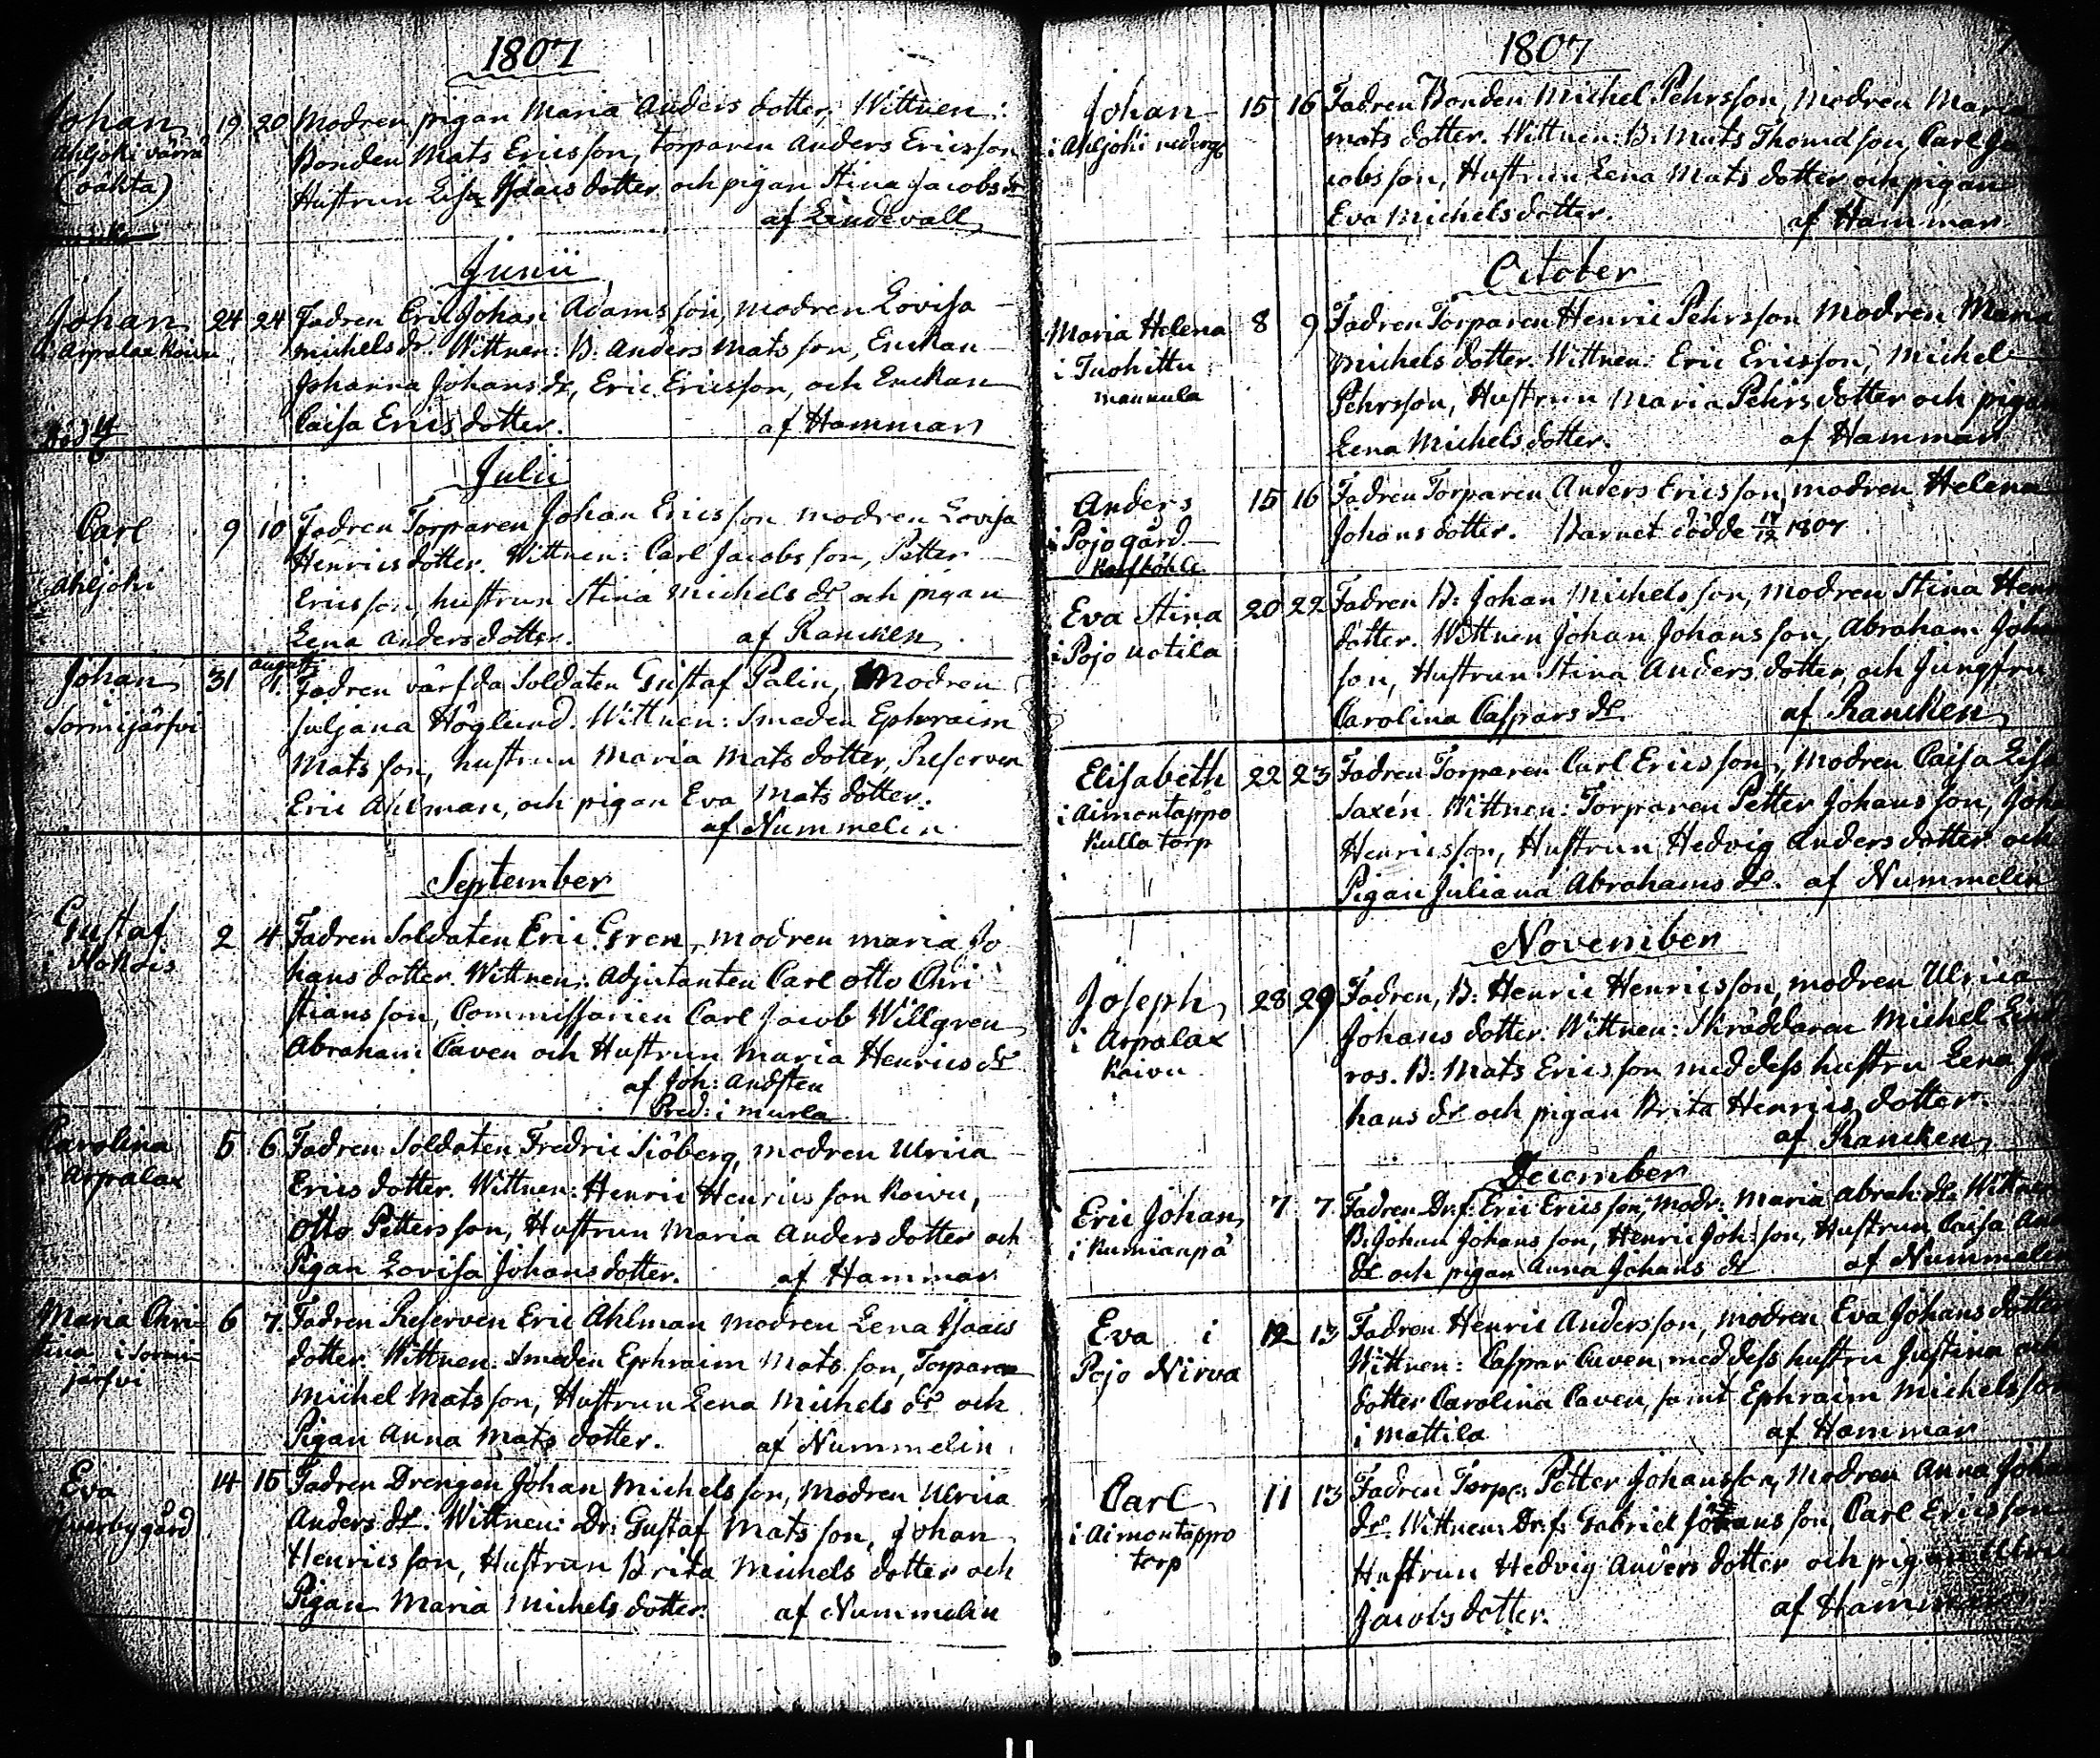 1807
Johan 19 20 Modren pigan Maria Anders dotter, Wittnen:
Ahljoki värrä Bonden Mats Ericsson, Torparen Anders Ericsson
(oäkta) Hustrun Lisa Isaacs dotter och pigan Stina Jacobs dr
af Lindevall
Junii
Johan 24 24 Fadren Eric Johan Adamsson, modren Lovisa
i Arpalax Koivu Michels dr. Wittnen: B: Anders Matsson, Enckan
Johanna Johans dr, Eric Ericsson, och Enckan
Caisa Erics dotter. af Hammar
Julii
Carl 9 10 Fadren Torparen Johan Ericsson modren Lovisa
Henrics dotter. Wittnen: Carl Jacobsson, Petter
Ahljoki Ericsson, hustrun Stina Michels dr och pigan
Lena Anders dotter. af Rancken
augusti
Johan 31 1. Fadren värfda Soldaten Gustaf Palin, Modren
Sormijärfvi Juljana Höglund. Wittnen: Smeden Ephraim
Matsson, hustrun Maria Mats dotter, Reserven
Eric Ahlman, och pigan Eva Mats dotter.
af Nummelin
September
Gustaf 2 4 Fadren Soldaten Eric Gren, modren Maria Jo
i hans dotter. Wittnen: Adjutanten Carl Otto Chri
stiansson, Commissarien Carl Jacob Willgren
Abraham Caven och Hustrun Maria Henrics dr
af Joh: Andsten
Pred: i Murla
Carolina 5 6 Fadren Soldaten Fredric Siöberg, modren Ulrica
i Arpalax Erics dotter. Wittnen: Henric Henricsson Koivu,
Otto Pettersson, Hustrun Maria Anders dotter och
Pigan Lovisa Johans dotter. af Hammar
Maria Chri 6 7. Fadren Reserven Eric Ahlman modren Lena Isaacs
stina i Sormi- dotter. Wittnen: Smeden Ephraim Matsson, Torparen
järfvi Michel Matsson, Hustrun Lena Michels dr och
Pigan Anna Mats dotter. af Nummelin
Eva 14 15 Fadren Drengen Johan Michelsson, modren Ulrica
Överby gård Anders dr. Wittnen: Dr: Gustaf Matsson, Johan
Henricsson, Hustrun Brita Michels dotter och
Pigan Maria Michels dotter. af Nummelin
1807
Johan 15 16 Fadren Bonden Michel Pehrsson, Modren Maria
i Ahljoki nederg Mats dotter. Wittnen: B: Mats Thomasson, Carl Ja
cobsson, Hustrun Lena Mats dotter och pigan
Eva Michels dotter. af Hammar
October
Maria Helena 8 9 Fadren Torparen Henric Pehrsson Modren Maria
i Tuohittu Michels dotter. Wittnen: Eric Ericsson, Michel
Mannula Pehrsson, Hustrun Maria Pehrs dotter och pigan
Lena Michels dotter. af Hammar
Anders 15 16 Fadren Torparen Anders Ericsson, modren Helena
i Pojo gård Johans dotter. Barnet dödde 17/12 1807
Eva Stina 20 22 Fadren B: Johan Michelsson, modren Stina Hen
i Pojo Uotila dotter. Wittnen Johan Johansson, Abraham Joh
son, Hustrun Stina Anders dotter, och Jungfru
Carolina Caspars dr af Rancken
Elisabeth 22 23 Fadren Torparen Carl Ericsson, Modren Caisa Lisa
i Aimontappo Saxén. Wittnen: Torparen Petter Johansson, Joh
Kulla torp Henricsson, Hustrun Hedvig Anders dotter och
Pigan Juliana Abrahams dr. af Nummelin
November
Joseph 28 29 Fadren, B: Henric Henricsson, modren Ulrica
i Arpalax Johans dotter. Wittnen: Skräddaren Michel Lind
Koivu ros. B: Mats Ericsson med dess hustru Lena Jo
hans dr och pigan Brita Henrics dotter.
af Rancken
December
Eric Johan 7. 7. Fadren Dr.f: Eric Ericsson, Modr: Maria Abrah: dr. Wittnen
i Rumianpä B: Johan Johansson, Henric Joh:son, Hustrun Caisa And
dr och pigan Anna Johans dr af Nummelin
Eva i 12 13 Fadren Henric Andersson, modren Eva Johans dotter
Pojo Nirva Wittnen: Caspar Caven med dess hustru Justina och
dotter Carolina Caven, samt Ephraim Michelsson
i Mattila af Hammar
Carl 11 13 Fadren Torp: Petter Johansson, Modren Anna Joha
i Aimontappo dr. Wittnen: Dr.f: Gabriel Johansson, Carl Ericsson
torp Hustrun Hedvig Anders dotter och pigan Ulri
Jacobs dotter. af Hammar